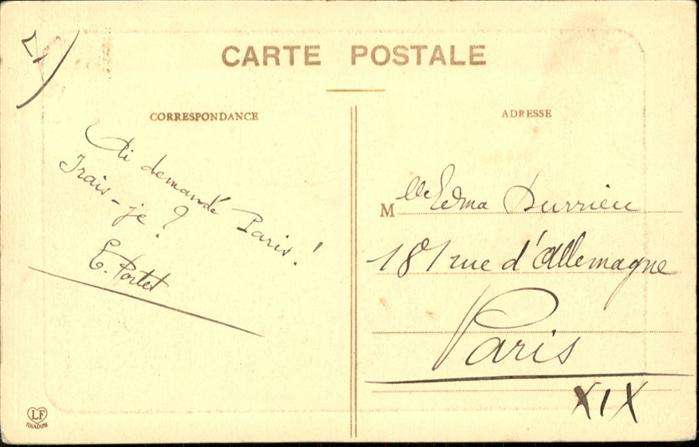 CARTE POSTALE
CORRESPONDANCE
Ai demandé Paris!
Irais-je?
E. Portet
ADRESSE
Mlle Edma Durrieu
181 rue d'Allemagne
Paris
XIX
LF